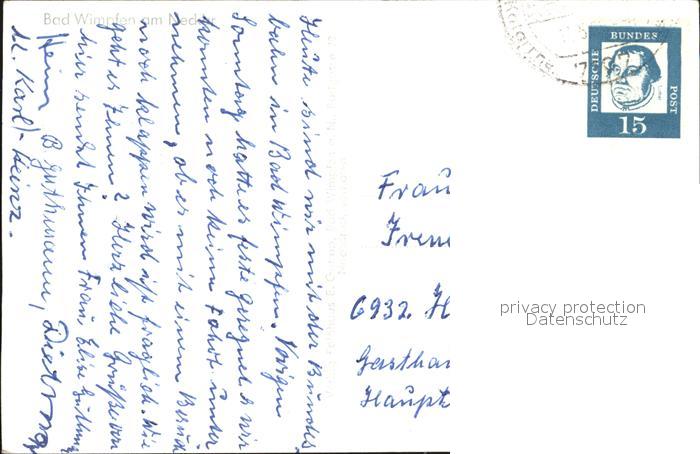 Bad Wimpfen am Neckar
Heute sind wir mit der Bundes-
bahn in Bad Wimpfen. Vorigen
Sonntag hatte es feste geregnet & wir
konnten noch keine Fahrt unter
nehmen, ob es mit einem Besuch
noch klappen wird ist fraglich. Wie
geht es Ihnen? Herzliche Grüße von
hier sendet Ihnen Frau Elise
Heim B. Guthmann, Dietmar
u. Karl-Heinz.
DEUTSCHE
BUNDES
POST
15
Frau
Irene
6932. H
Gasthau
Haupt
privacy protection
Datenschutz